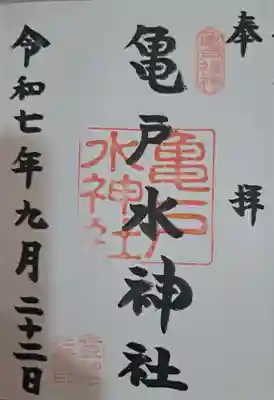 奉拝
亀戸水神社
令和七年九月二十二日
亀戸
水神社